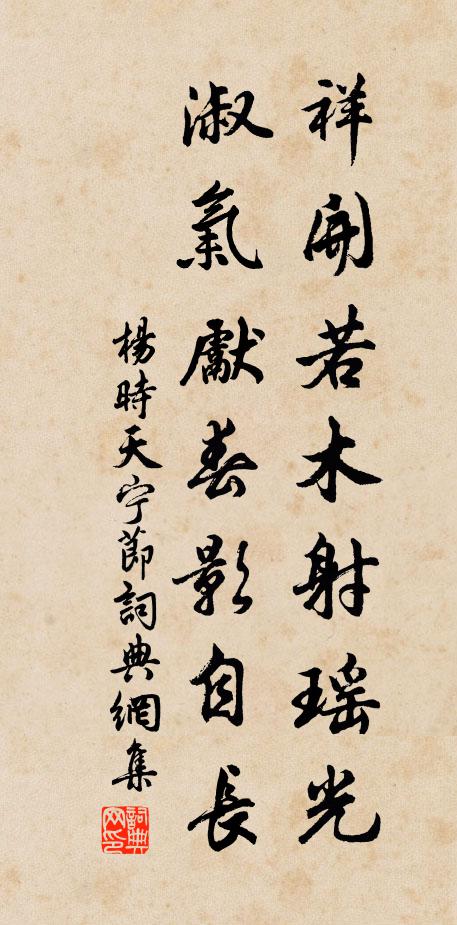 祥開若木射瑤光
淑氣獻春影自長
楊時天宁節詞典網集
詞典網印